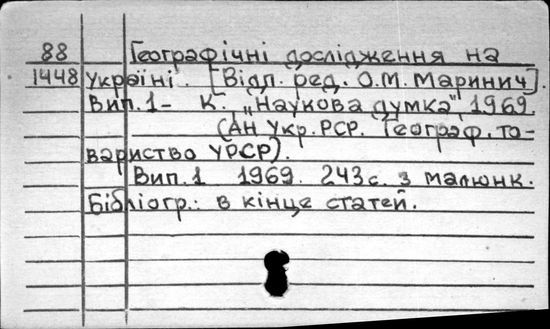 88 Географічні дослідження на
1448 Україні. [Відп. ред. О.М. Маринич].
Вип. 1- К. „Наукова думка", 1969.
(АН Укр. РСР. Географ. то-
вариство УРСР).
Вип. 1 1969. 243 с. з малюнк.
Бібліогр.: в кінце статей.